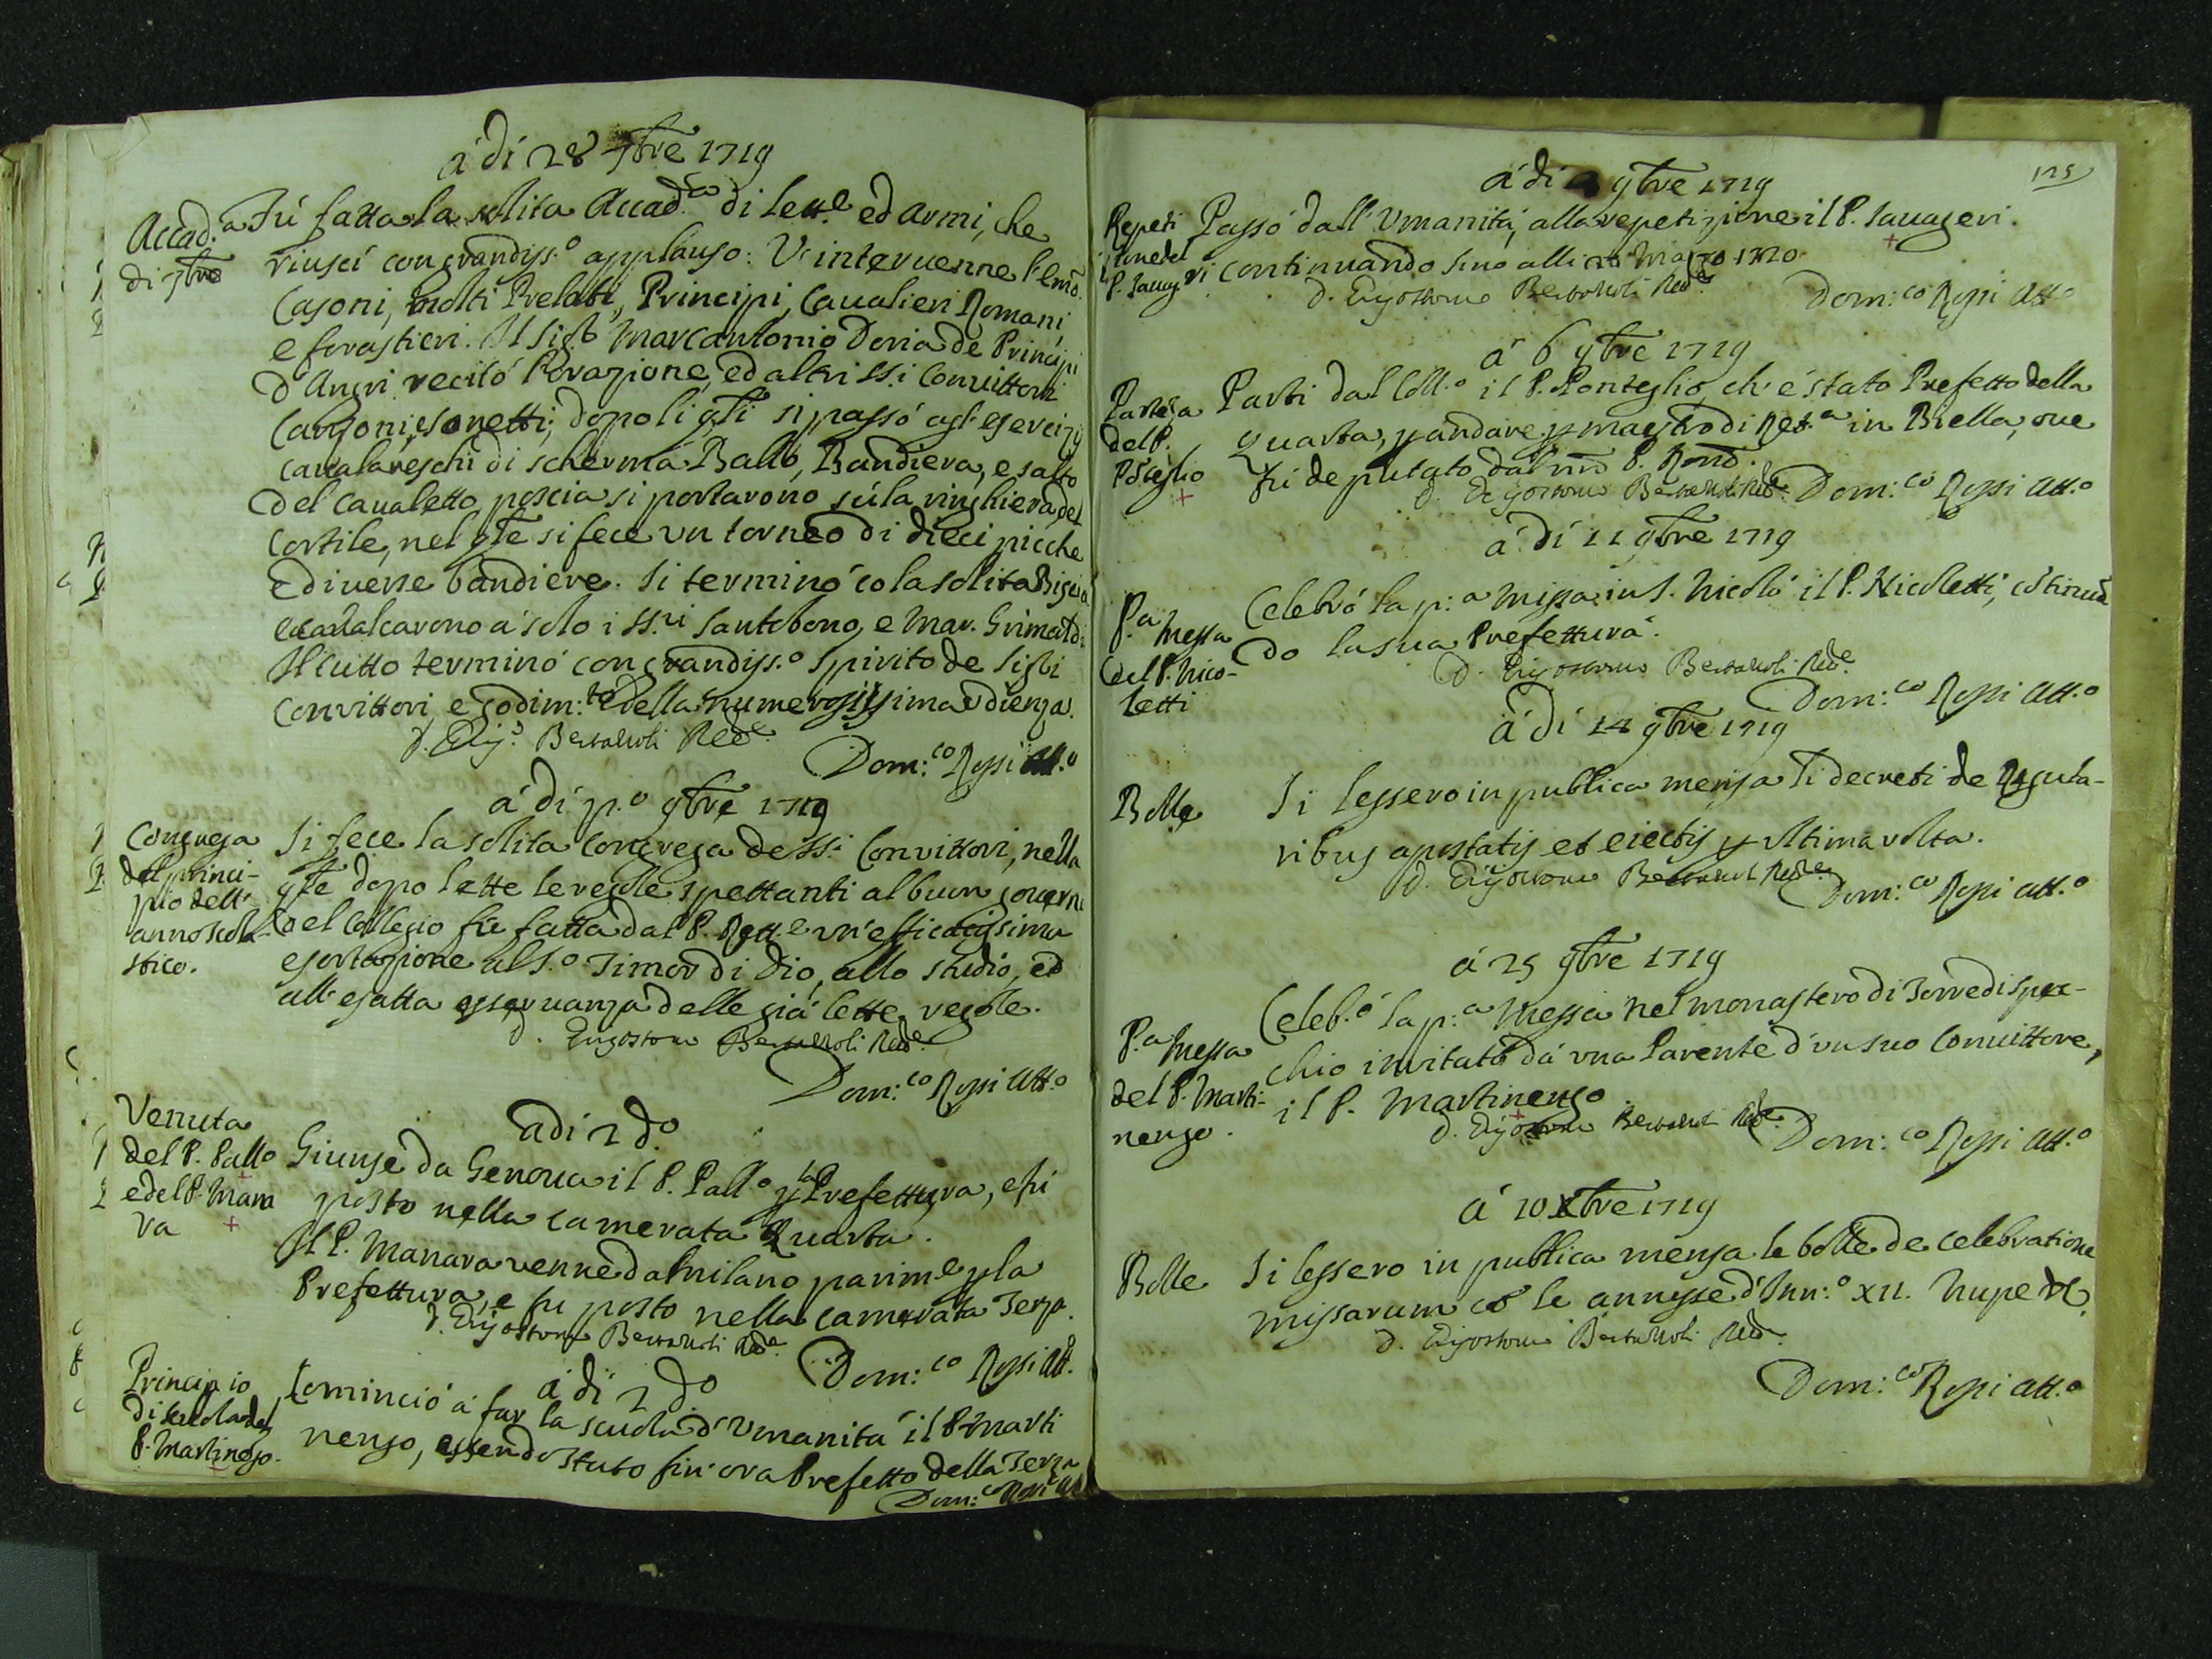 á dí 28 7bre 1719
Accad.a
di 7bre
Fú fatta la solita Accad.ca di lett.e ed armi, che
riuscí con grandiss.o applauso: V'interuenne l'Emo
Casoni, molti Prelati, Principi, Caualieri Romani
e forastieri. Il Sigr Marcantonio Doria de Principi
d'Angri recitó l'orazione, ed altri SS.i Conuittori
Canzoni, e sonetti; dopo li qli si passó agl'esercizij
caualareschi di scherma, Ballo, Bandiera, e salto
del caualetto, poscia si portarono sú la ringhiera del
Cortile, nel qle si fece un torneo di dieci picche
e diuerse bandiere. Si terminó co la solita
á solo i SS.ri Santobono, e Mar. Grimaldi
Il tutto terminó con grandiss.o spirito de Sigri
Convittori, e godim:to della numerosissima udienza.
D. Bertazzoli
Dom:co Rossi Att.o
á dí p.o 9bre 1719
Congrega
del princi-
pio dell'
anno scola-
stico.
Si fece la solita congrega de SS.i Convittori, nella
qle dopo lette le regole spettanti al buon gouerno
del Collegio fú fatta dal P. Rett.e un'efficacissima
esortazione al S.o Timor di Dio, allo studio, ed
all'esatta osseruanza delle giá lette regole.
D. Bertazzoli
Dom:co Rossi Att.o
adi 2 do
Venuta
del P. Pallo
e del P. Mana
ra
Giunse da Genoua il P. Pallo p la Prefettura, e fú
posto nella camerata Quarta.
Il P. Manara venne da Milano parim.e p la
Prefettura, e fu posto nella camerata Terza.
D. Bertazzoli
Dom:co Rossi Att.o
á dí 2 do
Principio
di scuola del
P. Martinego.
Cominció á far la scuola d'Umanitá il P. Marti
nengo, essendo stato fin'ora Prefetto della Terza
Dom:co Rossi Att.o
125
á dí 9bre 1719
Repeti
zione del
P. Sauageri
Passó dall'Umanitá, alla repetizione il P. Sauageri.
continuando sino alli Marzo 1720
D. Bertazzoli
Dom:co Rossi Att.o
á 6 9bre 1719
Parteza
del P.
Póteglio
Partí dal Coll.o il P. Ponteglio, ch'é stato Prefetto della
Quarta, p andare p maestro di Ret.a in Biella, oue
fú deputato dal P.
D. Bertazzoli Dom:co Rossi Att.o
á dí 11 9bre 1719
P.a Messa
del P. Nico-
letti
Celebró la p:a Messa in S. Nicoló il P. Nicoletti, cótinuá
do la sua Prefettura.
D. Bertazzoli
Dom:co Rossi Att.o
á dí 14 9bre 1719
Bolle
Si lessero in publica mensa li decreti de Regula-
ribus apostatis et eiectis p ultima volta.
D. Bertazzoli
Dom:co Rossi Att.o
á 25 9bre 1719
P.a Messa
del P. Marti-
nengo.
Celeb.ó la p:a Messa nel monastero di Torre di Spec-
chio invitato dá una Parente d'un suo Conuittore,
il P. Martinengo
D. Bertazzoli Dom:co Rossi Att.o
á 10 Xbre 1719
Bolle
Si lessero in publica mensa le bolle de celebratione
missarum có le annesse d'Inn:o XII. Nuper
D. Bertazzoli
Dom:co Rossi Att.o